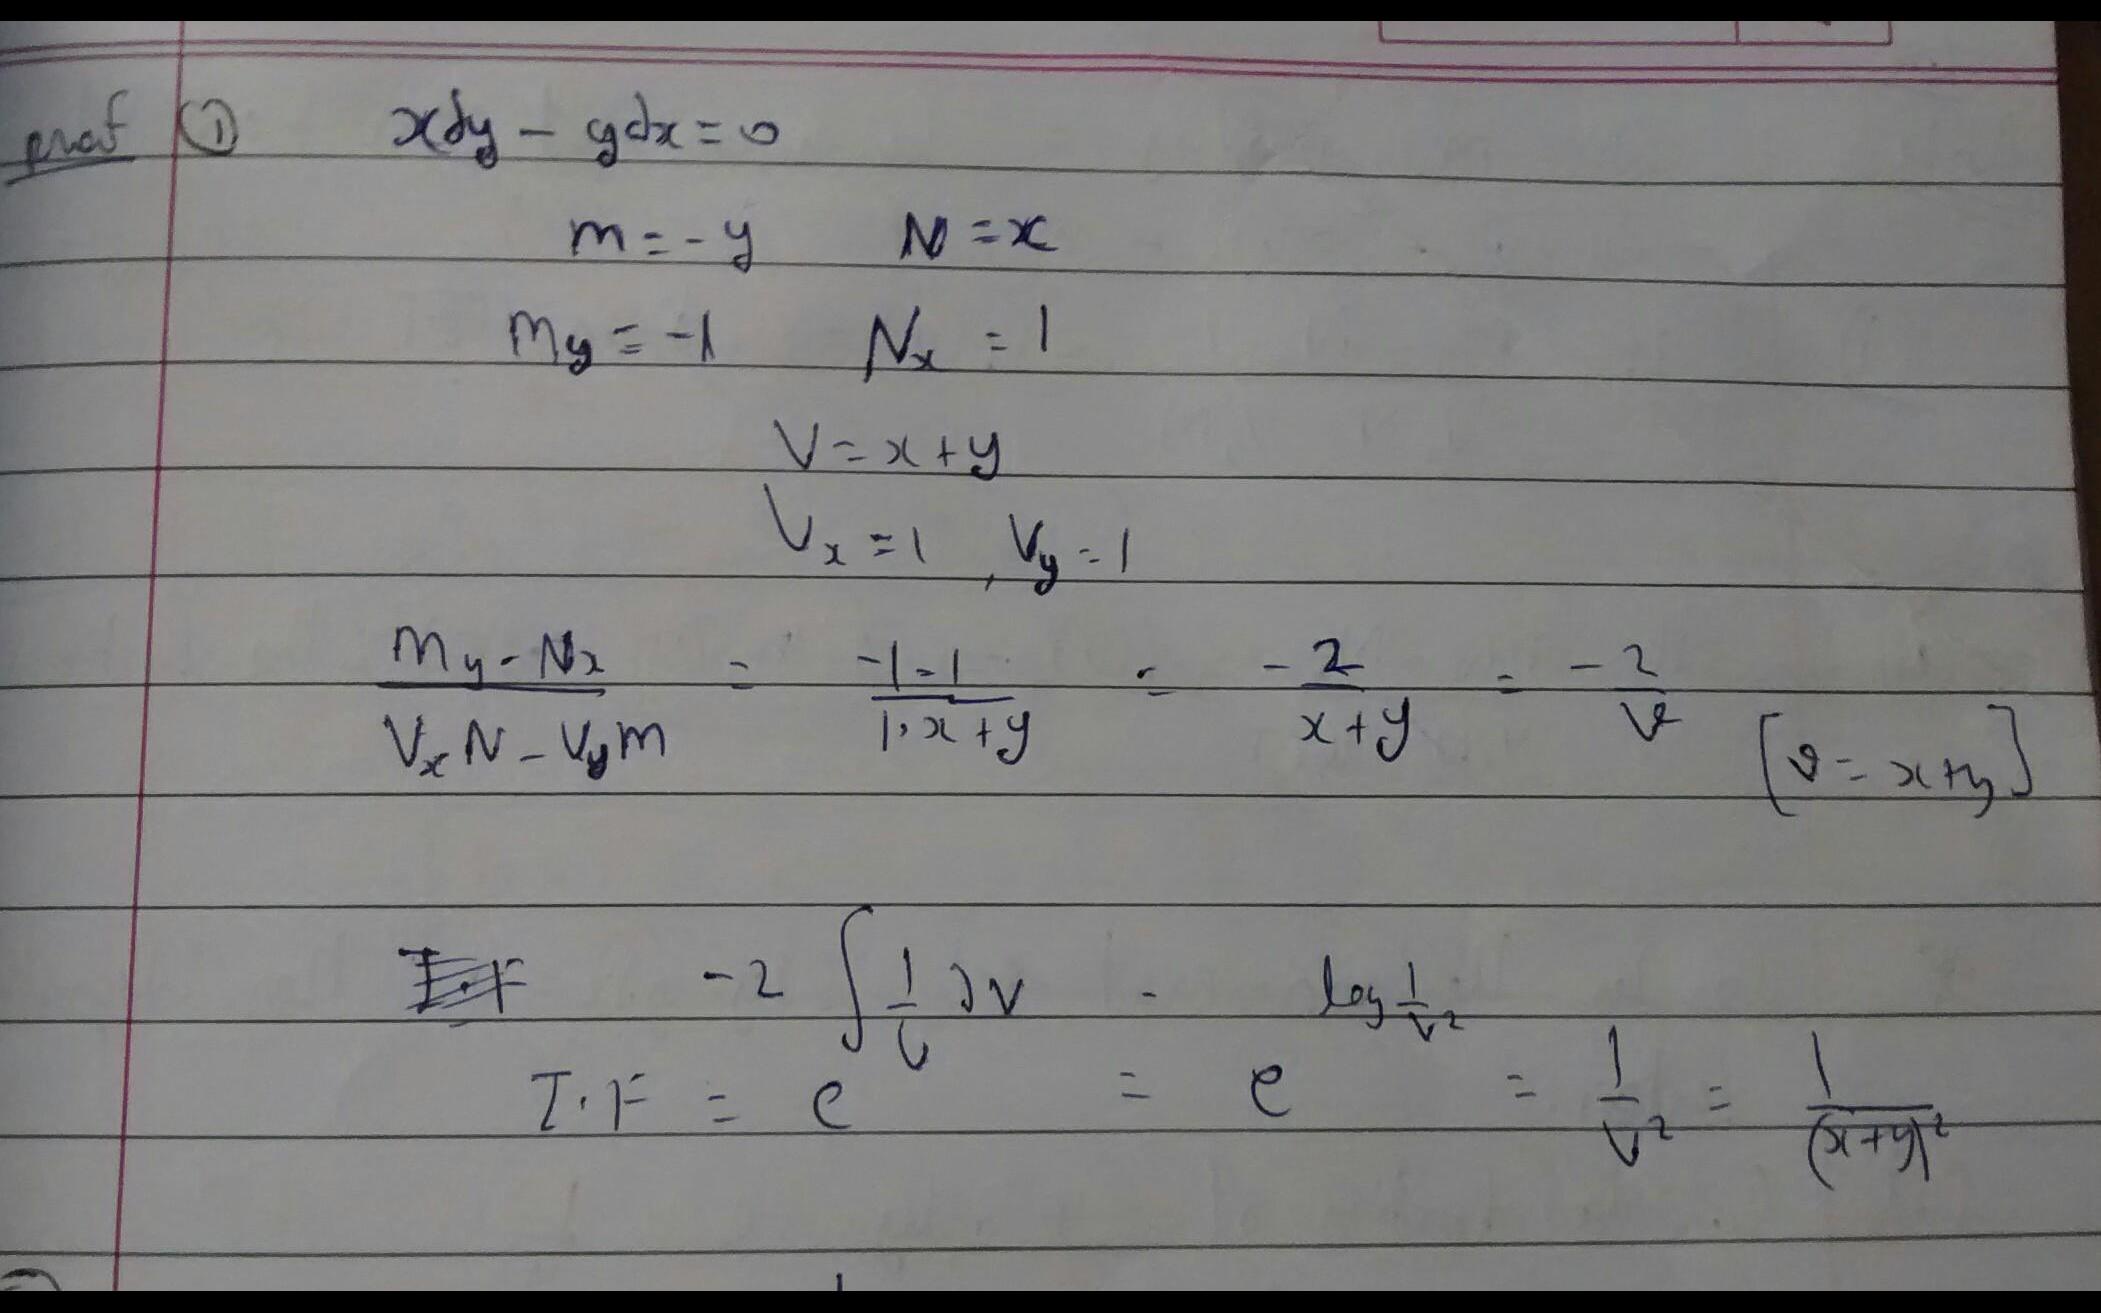 proof ① xdy - ydx = 0
m = -y N = x
my = -1 Nx = 1
V = x + y
Vx = 1 , Vy = 1
my - Nx / VxN - Vym = -1-1 / 1·x + y = -2 / x+y = -2 / v [v = x+y]
I.F = e^(-2 ∫ 1/v dv) = e^(log 1/v²) = 1/v² = 1/(x+y)²